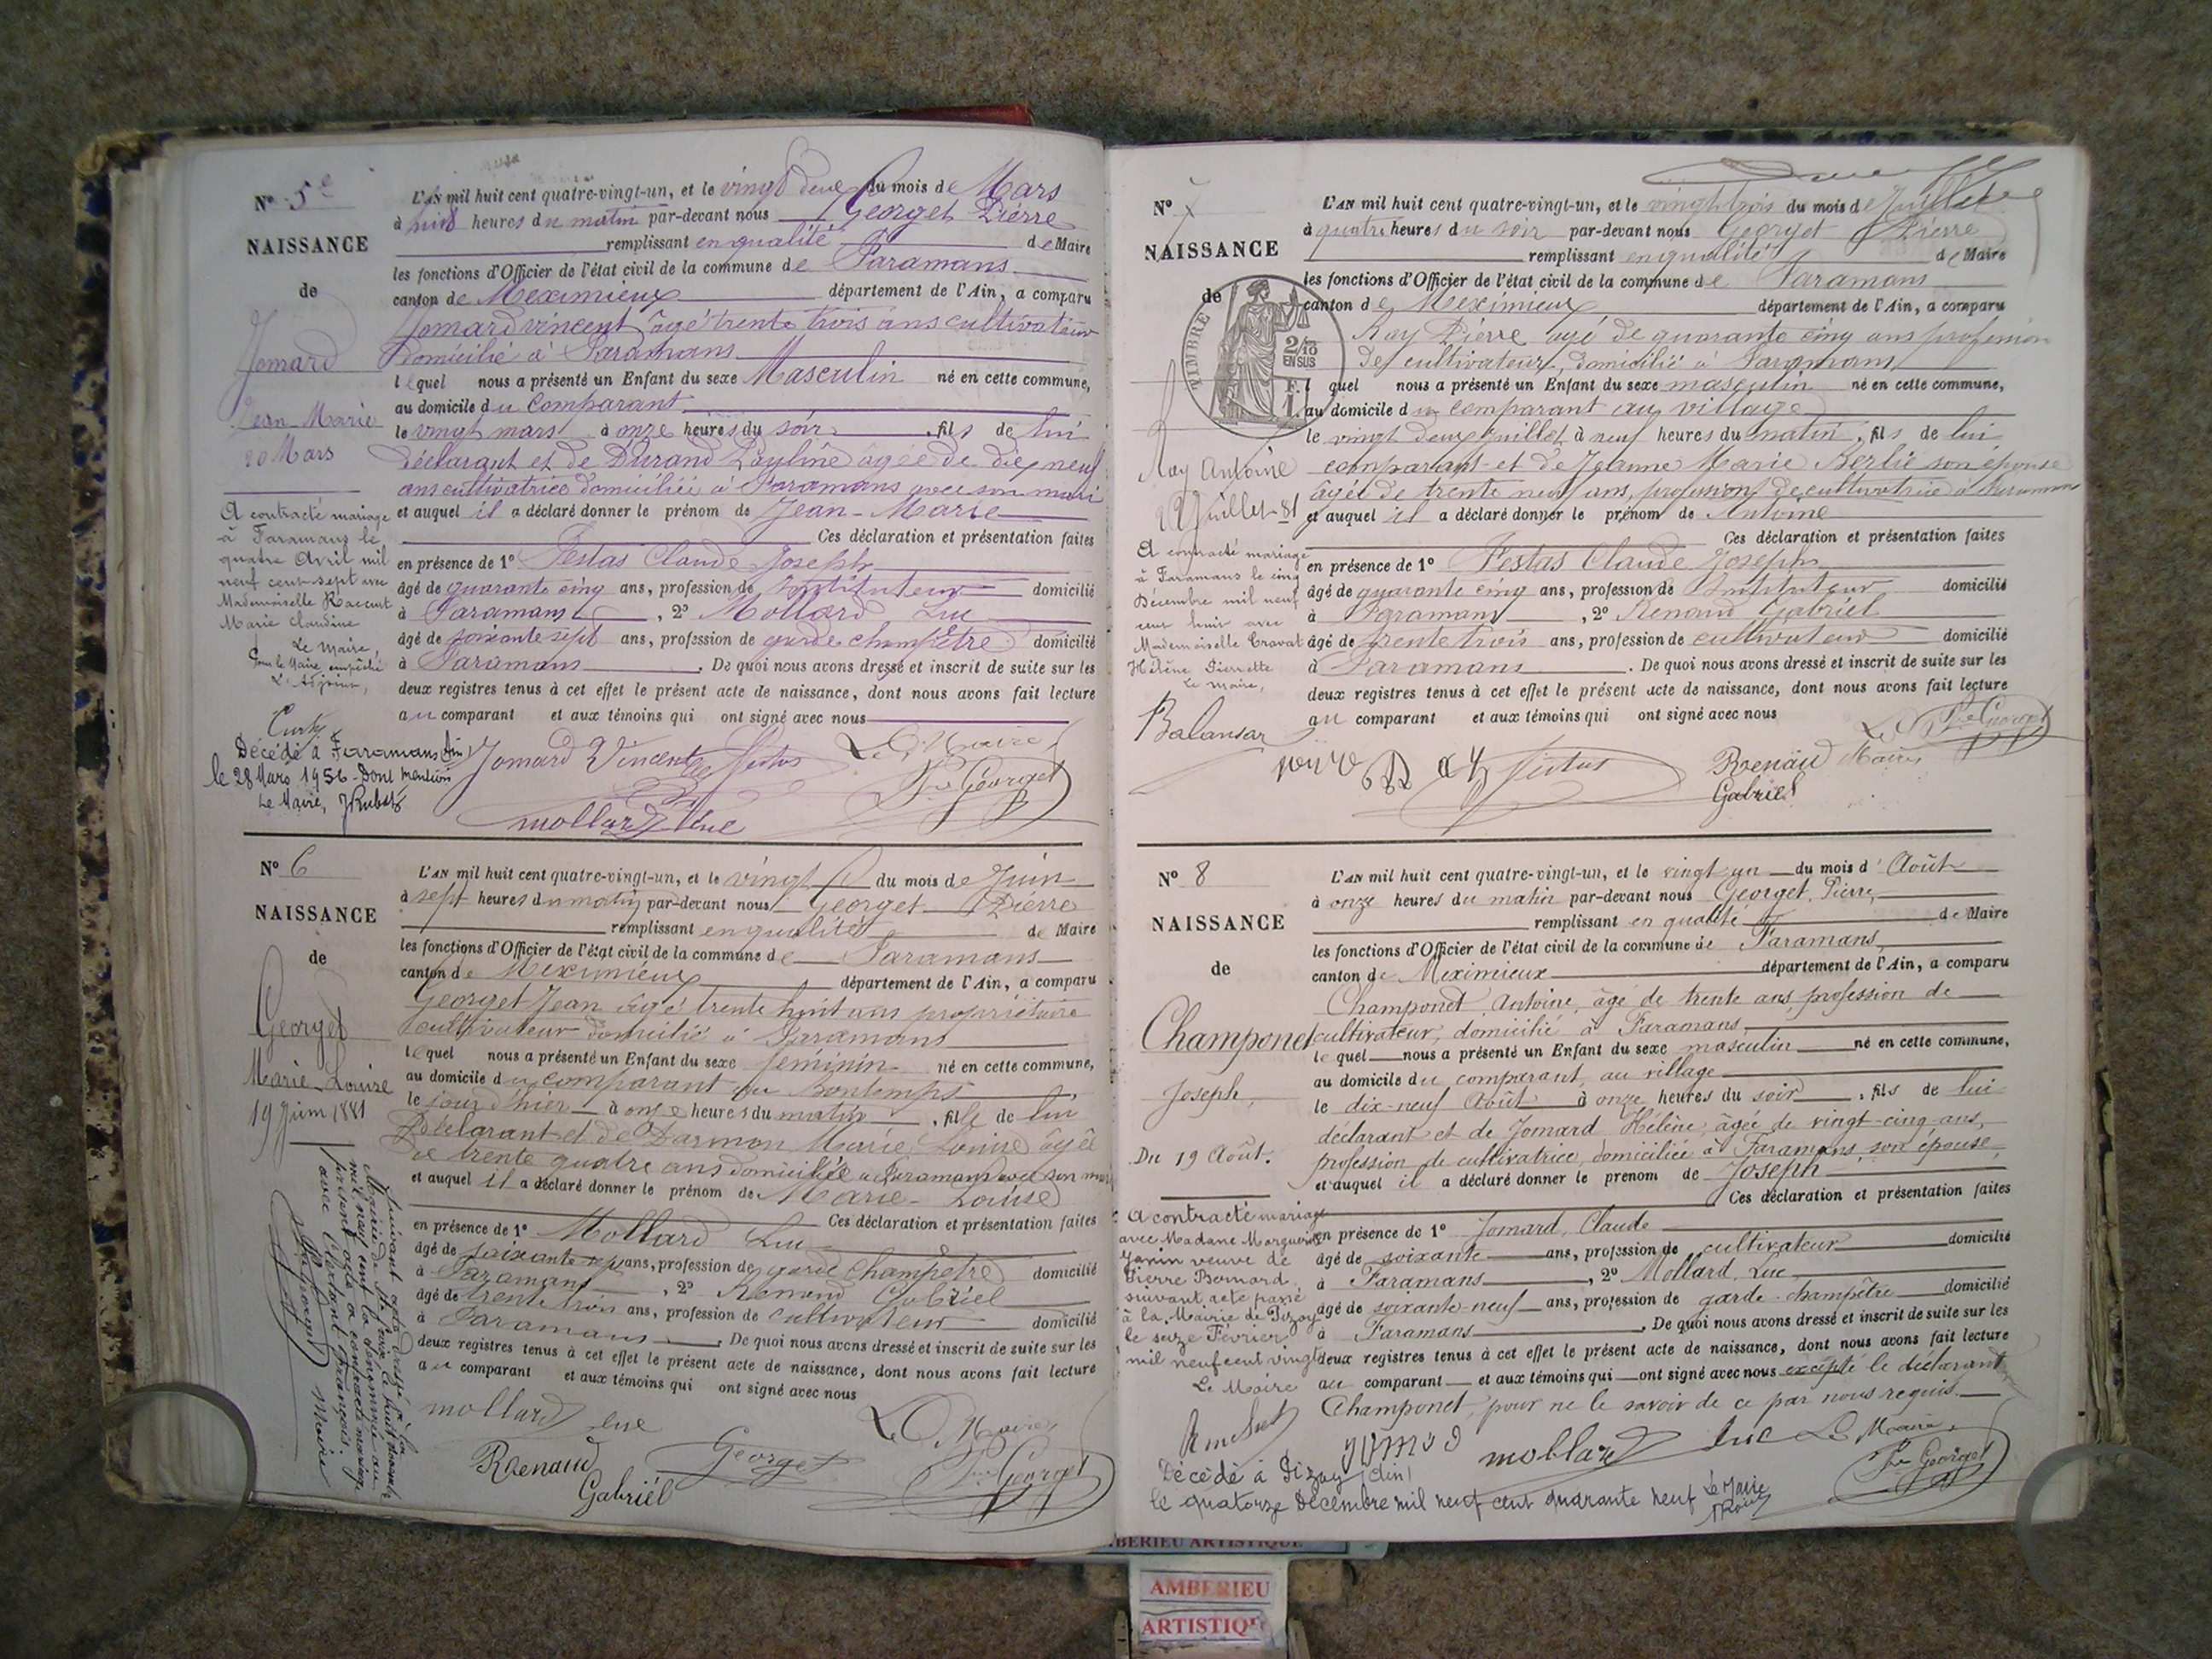 N° 5e
NAISSANCE
de
Jomard
Jean-Marie
20 Mars
A contracté mariage
à Faramans le
quatre Avril mil
neuf cent sept avec
Mademoiselle
Marie Claudine
Le Maire,
Pour le Maire empêché
L'Adjoint,
Décédé à Faramans (Ain)
le 28 Mars 1956 - Dont mention
Le Maire,
L'AN mil huit cent quatre-vingt-un, et le vingt deux du mois de Mars
à huit heures du matin par-devant nous Georget Pierre
remplissant en qualité de Maire
les fonctions d'Officier de l'état civil de la commune de Faramans
canton de Meximieux département de l'Ain, a comparu
Jomard vincent âgé trente trois ans cultivateur
domicilié à Faramans
lequel nous a présenté un Enfant du sexe Masculin né en cette commune,
au domicile du Comparant
le vingt mars à onze heures du soir, fils de lui
déclarant et de Durand Pauline âgée de diz neuf
ans cultivatrice domiciliée à Faramans avec son mari
et auquel il a déclaré donner le prénom de Jean-Marie
Ces déclaration et présentation faites
en présence de 1° Festas Claude Joseph
âgé de quarante cinq ans, profession de instituteur domicilié
à Faramans, 2° Mollard Luc
âgé de soixante sept ans, profession de garde champêtre domicilié
à Faramans. De quoi nous avons dressé et inscrit de suite sur les
deux registres tenus à cet effet le présent acte de naissance, dont nous avons fait lecture
au comparant et aux témoins qui ont signé avec nous
Jomard Vincent Festas Le Maire
mollard luc Pre Georget
N° 6
NAISSANCE
de
Georget
Marie-Louise
19 Juin 1881
L'AN mil huit cent quatre-vingt-un, et le vingt du mois de Juin
à sept heures du matin par-devant nous Georget Pierre
remplissant en qualité de Maire
les fonctions d'Officier de l'état civil de la commune de Faramans
canton de Meximieux département de l'Ain, a comparu
Georget Jean âgé trente huit ans propriétaire
cultivateur domicilié à Faramans
lequel nous a présenté un Enfant du sexe féminin né en cette commune,
au domicile du comparant au Bontemps
le jour d'hier à onze heures du matin, fille de lui
déclarant et de Darmon Marie Louise âgée
de trente quatre ans domiciliée à Faramans avec son mari
et auquel il a déclaré donner le prénom de Marie-Louise
Ces déclaration et présentation faites
en présence de 1° Mollard Luc
âgé de soixante sept ans, profession de garde champêtre domicilié
à Faramans, 2° Renaud Gabriel
âgé de trente trois ans, profession de cultivateur domicilié
à Faramans. De quoi nous avons dressé et inscrit de suite sur les
deux registres tenus à cet effet le présent acte de naissance, dont nous avons fait lecture
au comparant et aux témoins qui ont signé avec nous
mollard luc Le Maire
Renaud Gabriel Georget Pre Georget
N° 7
NAISSANCE
de
TIMBRE
2/10
EN SUS
Ray Antoine
22 Juillet 81
A contracté mariage
à Faramans le cinq
Décembre mil neuf
cent huit avec
Mademoiselle Cravat
Hélène Pierrette
Le Maire,
Balansar
L'AN mil huit cent quatre-vingt-un, et le vingt trois du mois de Juillet
à quatre heures du soir par-devant nous Georget Pierre
remplissant en qualité de Maire
les fonctions d'Officier de l'état civil de la commune de Faramans
canton de Meximieux département de l'Ain, a comparu
Ray Pierre agé de quarante cinq ans profession
de cultivateur, domicilié à Faramans
lequel nous a présenté un Enfant du sexe masculin né en cette commune,
au domicile du comparant au village
le vingt deux Juillet à neuf heures du matin, fils de lui
comparant et de Jeanne Marie Berlie son épouse
âgée de trente neuf ans, profession de cultivatrice à Faramans
et auquel il a déclaré donner le prénom de Antoine
Ces déclaration et présentation faites
en présence de 1° Festas Claude Joseph
âgé de quarante cinq ans, profession de Instituteur domicilié
à Faramans, 2° Renaud Gabriel
âgé de trente trois ans, profession de cultivateur domicilié
à Faramans. De quoi nous avons dressé et inscrit de suite sur les
deux registres tenus à cet effet le présent acte de naissance, dont nous avons fait lecture
au comparant et aux témoins qui ont signé avec nous
Festas Renaud Gabriel Le Maire Pre Georget
N° 8
NAISSANCE
de
Champonet
Joseph,
Du 19 Août.
A contracté mariage
avec Madame Marguerite
Janin veuve de
Pierre Bernard
suivant acte passé
à la Mairie de Pizay
le seize Février
mil neuf cent vingt
Le Maire
Décédé à Pizay (Ain)
le quatorze Décembre mil neuf cent quarante neuf Le Maire
L'AN mil huit cent quatre-vingt-un, et le vingt un du mois d'Août
à onze heures du matin par-devant nous Georget, Pierre,
remplissant en qualité de Maire
les fonctions d'Officier de l'état civil de la commune de Faramans,
canton de Meximieux département de l'Ain, a comparu
Champonet Antoine, âgé de trente ans, profession de
cultivateur, domicilié à Faramans,
lequel nous a présenté un Enfant du sexe masculin né en cette commune,
au domicile du comparant, au village
le dix-neuf Août à onze heures du soir, fils de lui
déclarant et de Jomard Hélène, âgée de vingt-cinq ans,
profession de cultivatrice, domiciliée à Faramans, son épouse,
et auquel il a déclaré donner le prenom de Joseph
Ces déclaration et présentation faites
en présence de 1° Jomard, Claude
âgé de soixante ans, profession de cultivateur domicilié
à Faramans, 2° Mollard, Luc
âgé de soixante-neuf ans, profession de garde-champêtre domicilié
à Faramans. De quoi nous avons dressé et inscrit de suite sur les
deux registres tenus à cet effet le présent acte de naissance, dont nous avons fait lecture
au comparant et aux témoins qui ont signé avec nous excepté le déclarant
Champonet, pour ne le savoir de ce par nous requis.
jomard mollard luc Le Maire,
Pre Georget
AMBERIEU ARTISTIQUE
AMBERIEU
ARTISTIQUE